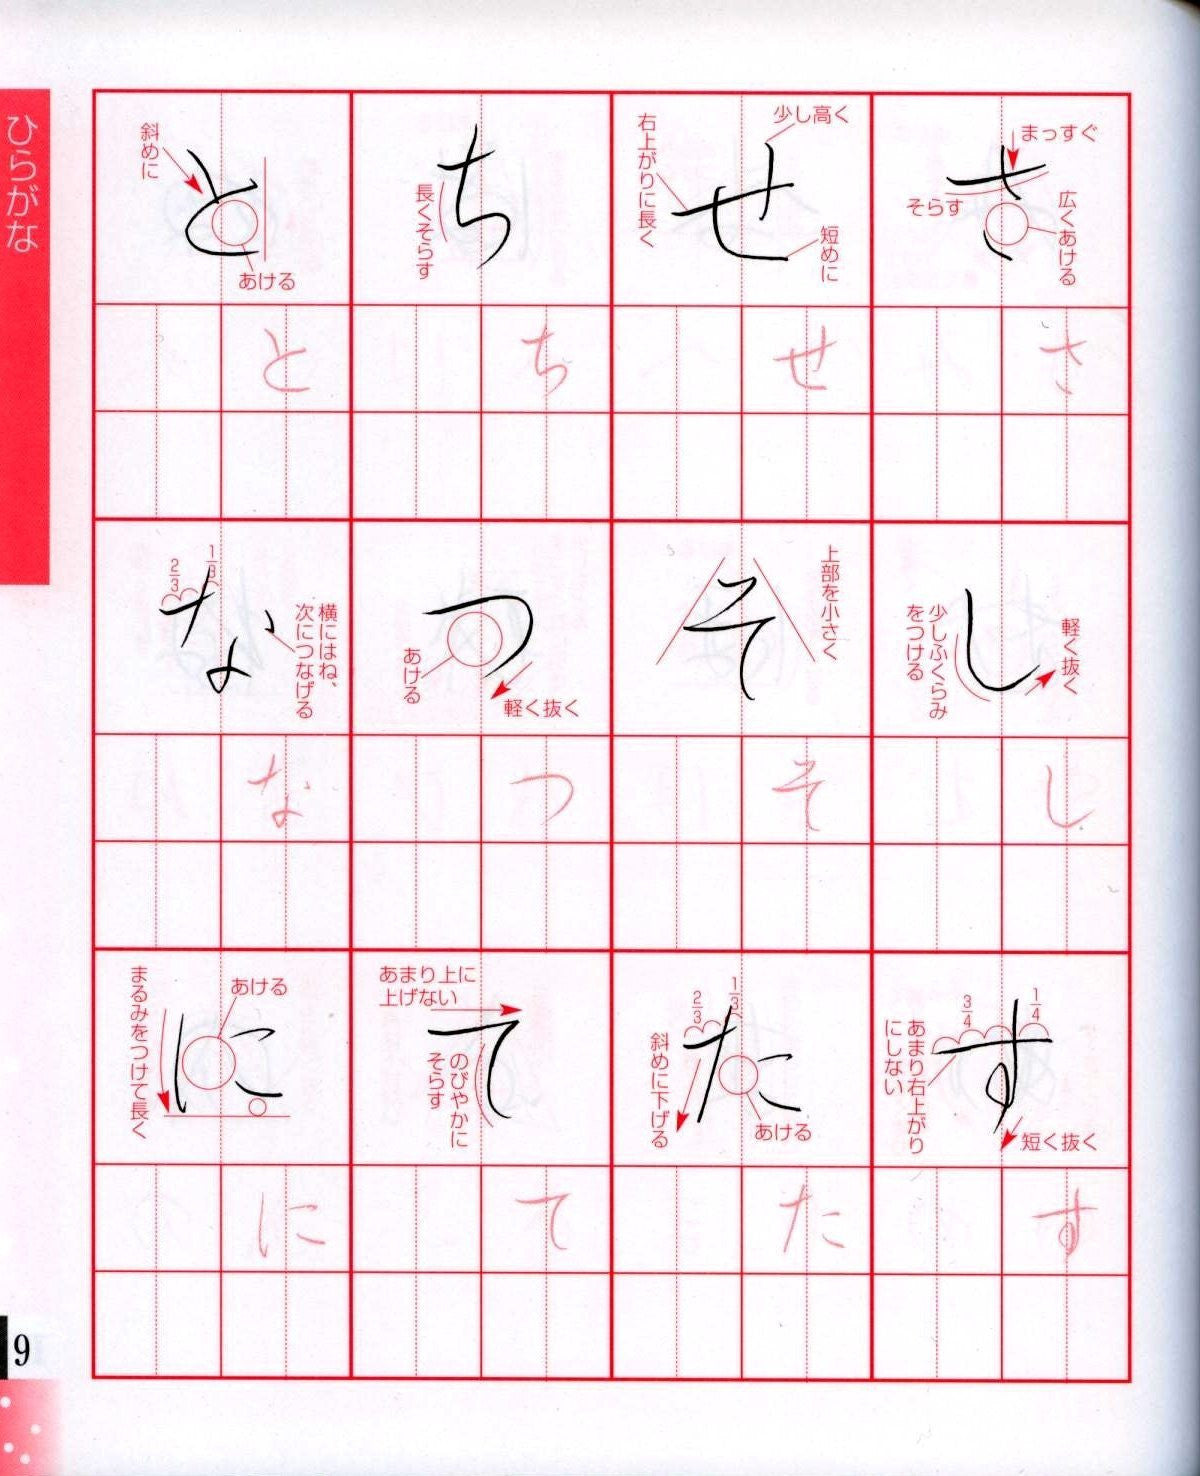 ひらがな
さ
まっすぐ
そらす
広くあける
さ
し
軽く抜く
少しふくらみ
をつける
し
す
1/4
3/4
あまり右上がり
にしない
短く抜く
す
せ
少し高く
右上がりに長く
短めに
せ
そ
上部を小さく
そ
た
1/3
2/3
斜めに下げる
あける
た
ち
長くそらす
ち
つ
あける
軽く抜く
つ
て
あまり上に
上げない
のびやかに
そらす
て
と
斜めに
あける
と
な
1/3
2/3
横にはね、
次につなげる
な
に
あける
まるみをつけて長く
に
9